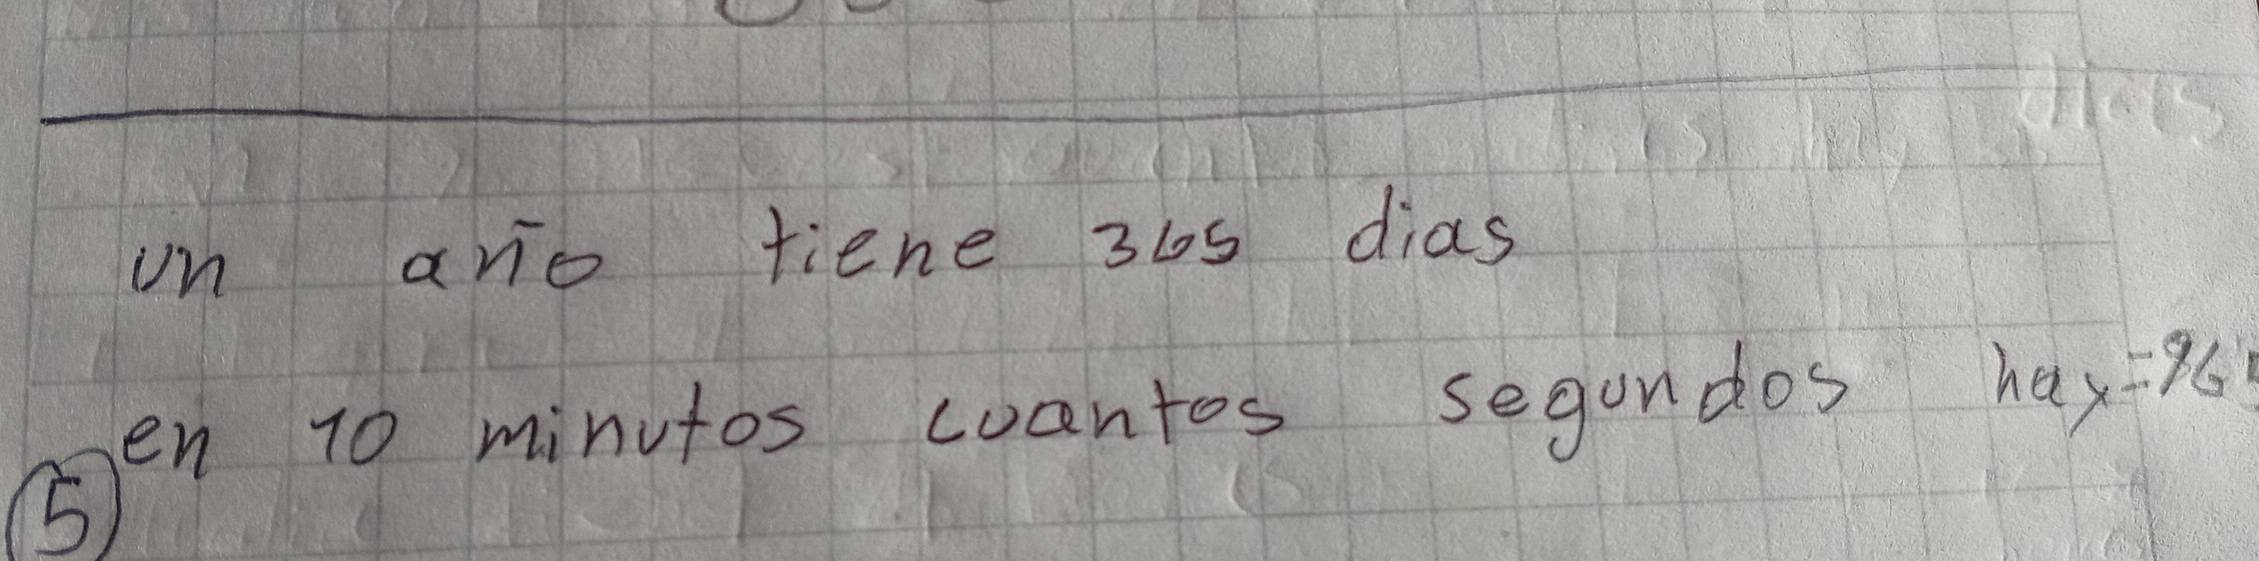 un año tiene 365 dias
en 10 minutos cuantos segundos hay=96
5